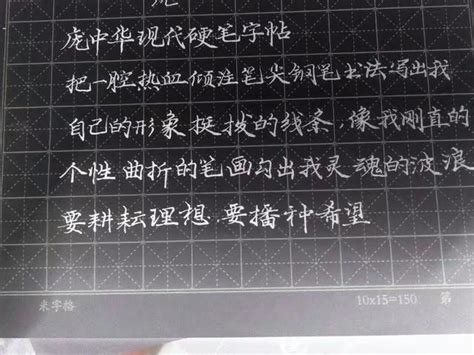 庞中华现代硬笔字帖
把一腔热血倾注笔尖钢笔书法写出我
自己的形象挺拔的线条,像我刚直的
个性曲折的笔画勾出我灵魂的波浪
要耕耘理想.要播种希望
米字格 10x15=150 第